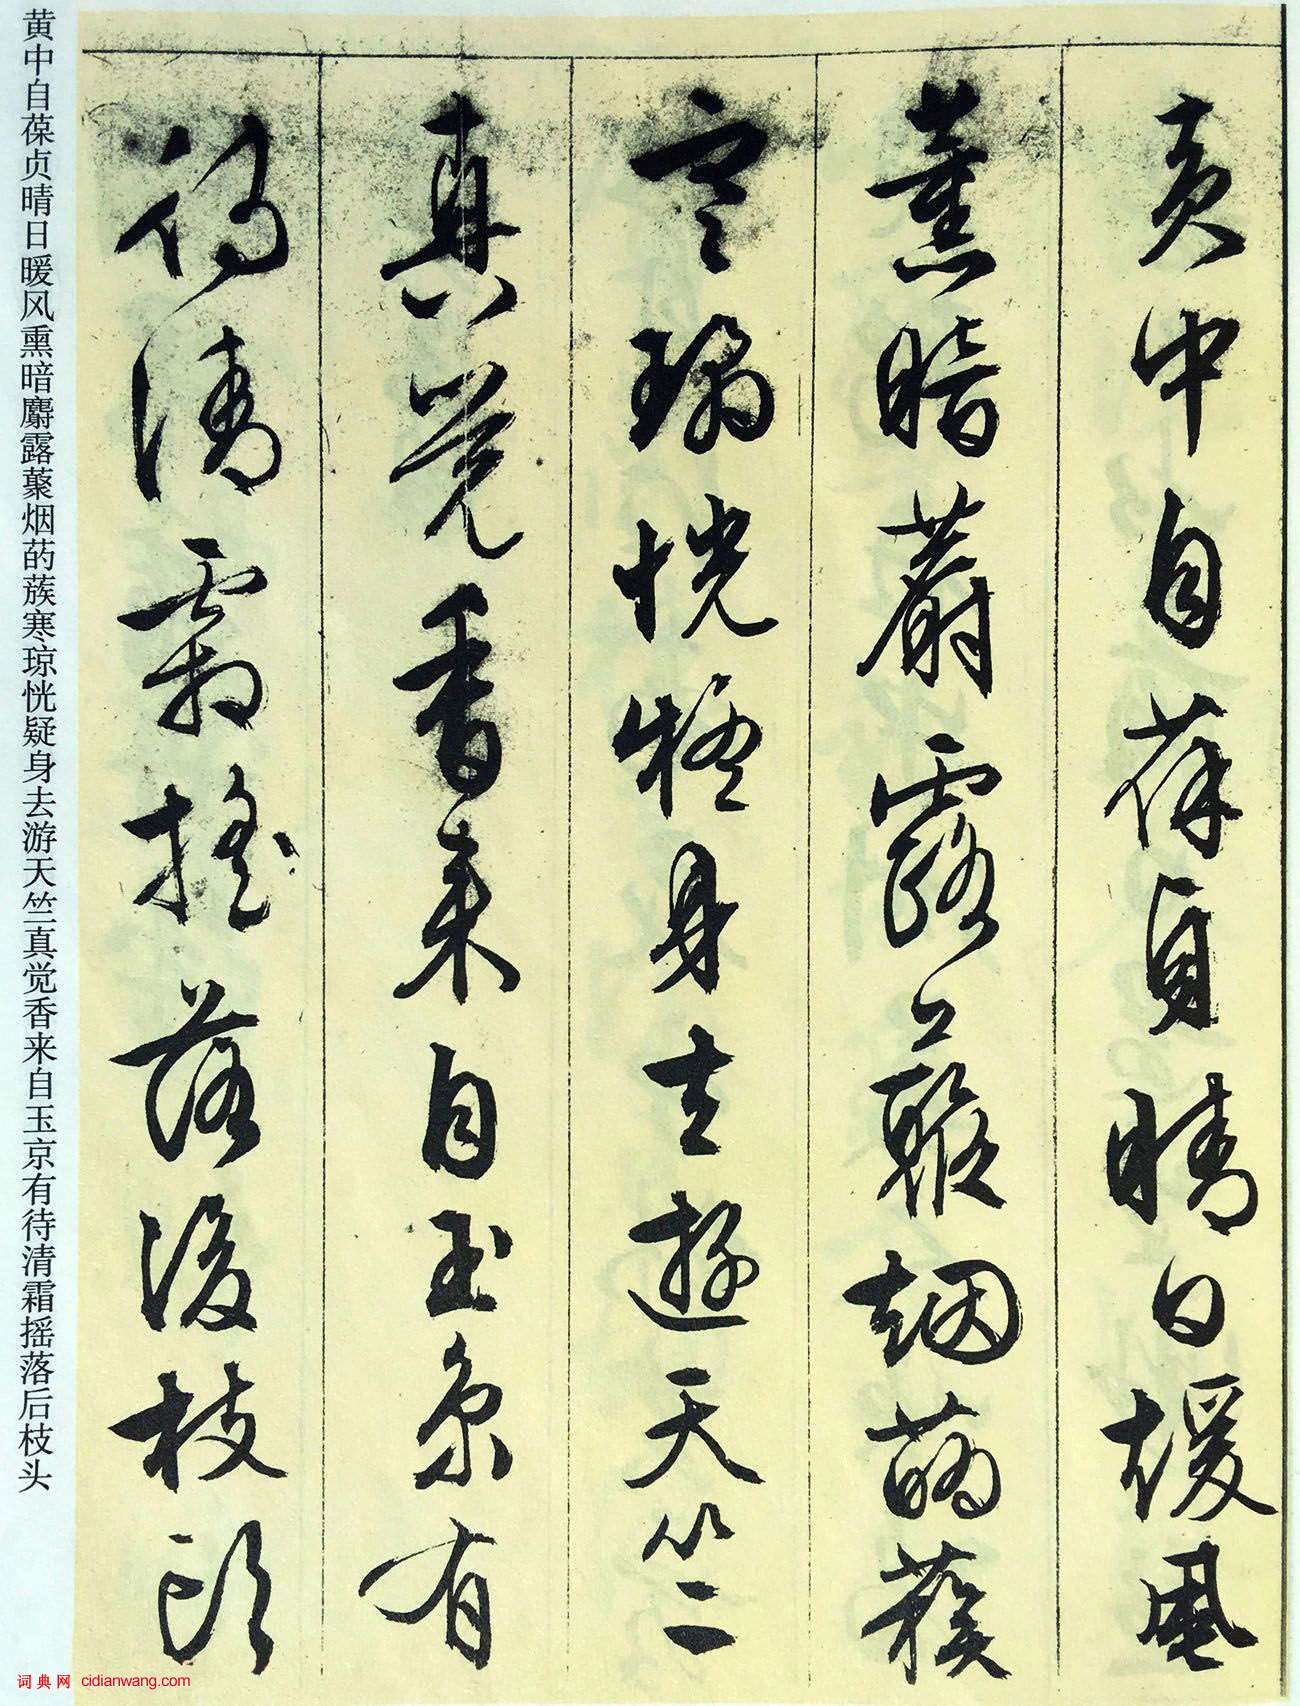 黄中自葆贞晴日暖风
薰暗麝露蘂烟药蔟
寒琼恍疑身去遊天竺
真觉香来自玉京有
待清霜摇落後枝頭
黄中自葆贞晴日暖风熏暗麝露蕠烟药蔟寒琼恍疑身去游天竺真觉香来自玉京有待清霜摇落后枝头
词典网 cidianwang.com